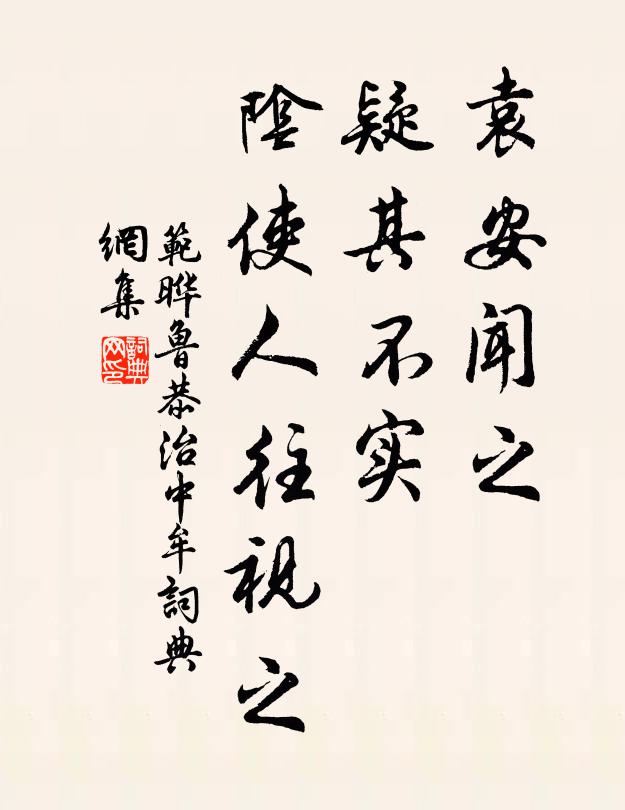 袁安闻之
疑其不实
陰使人往視之
範晔鲁恭治中牟詞典
網集
詞典
网印